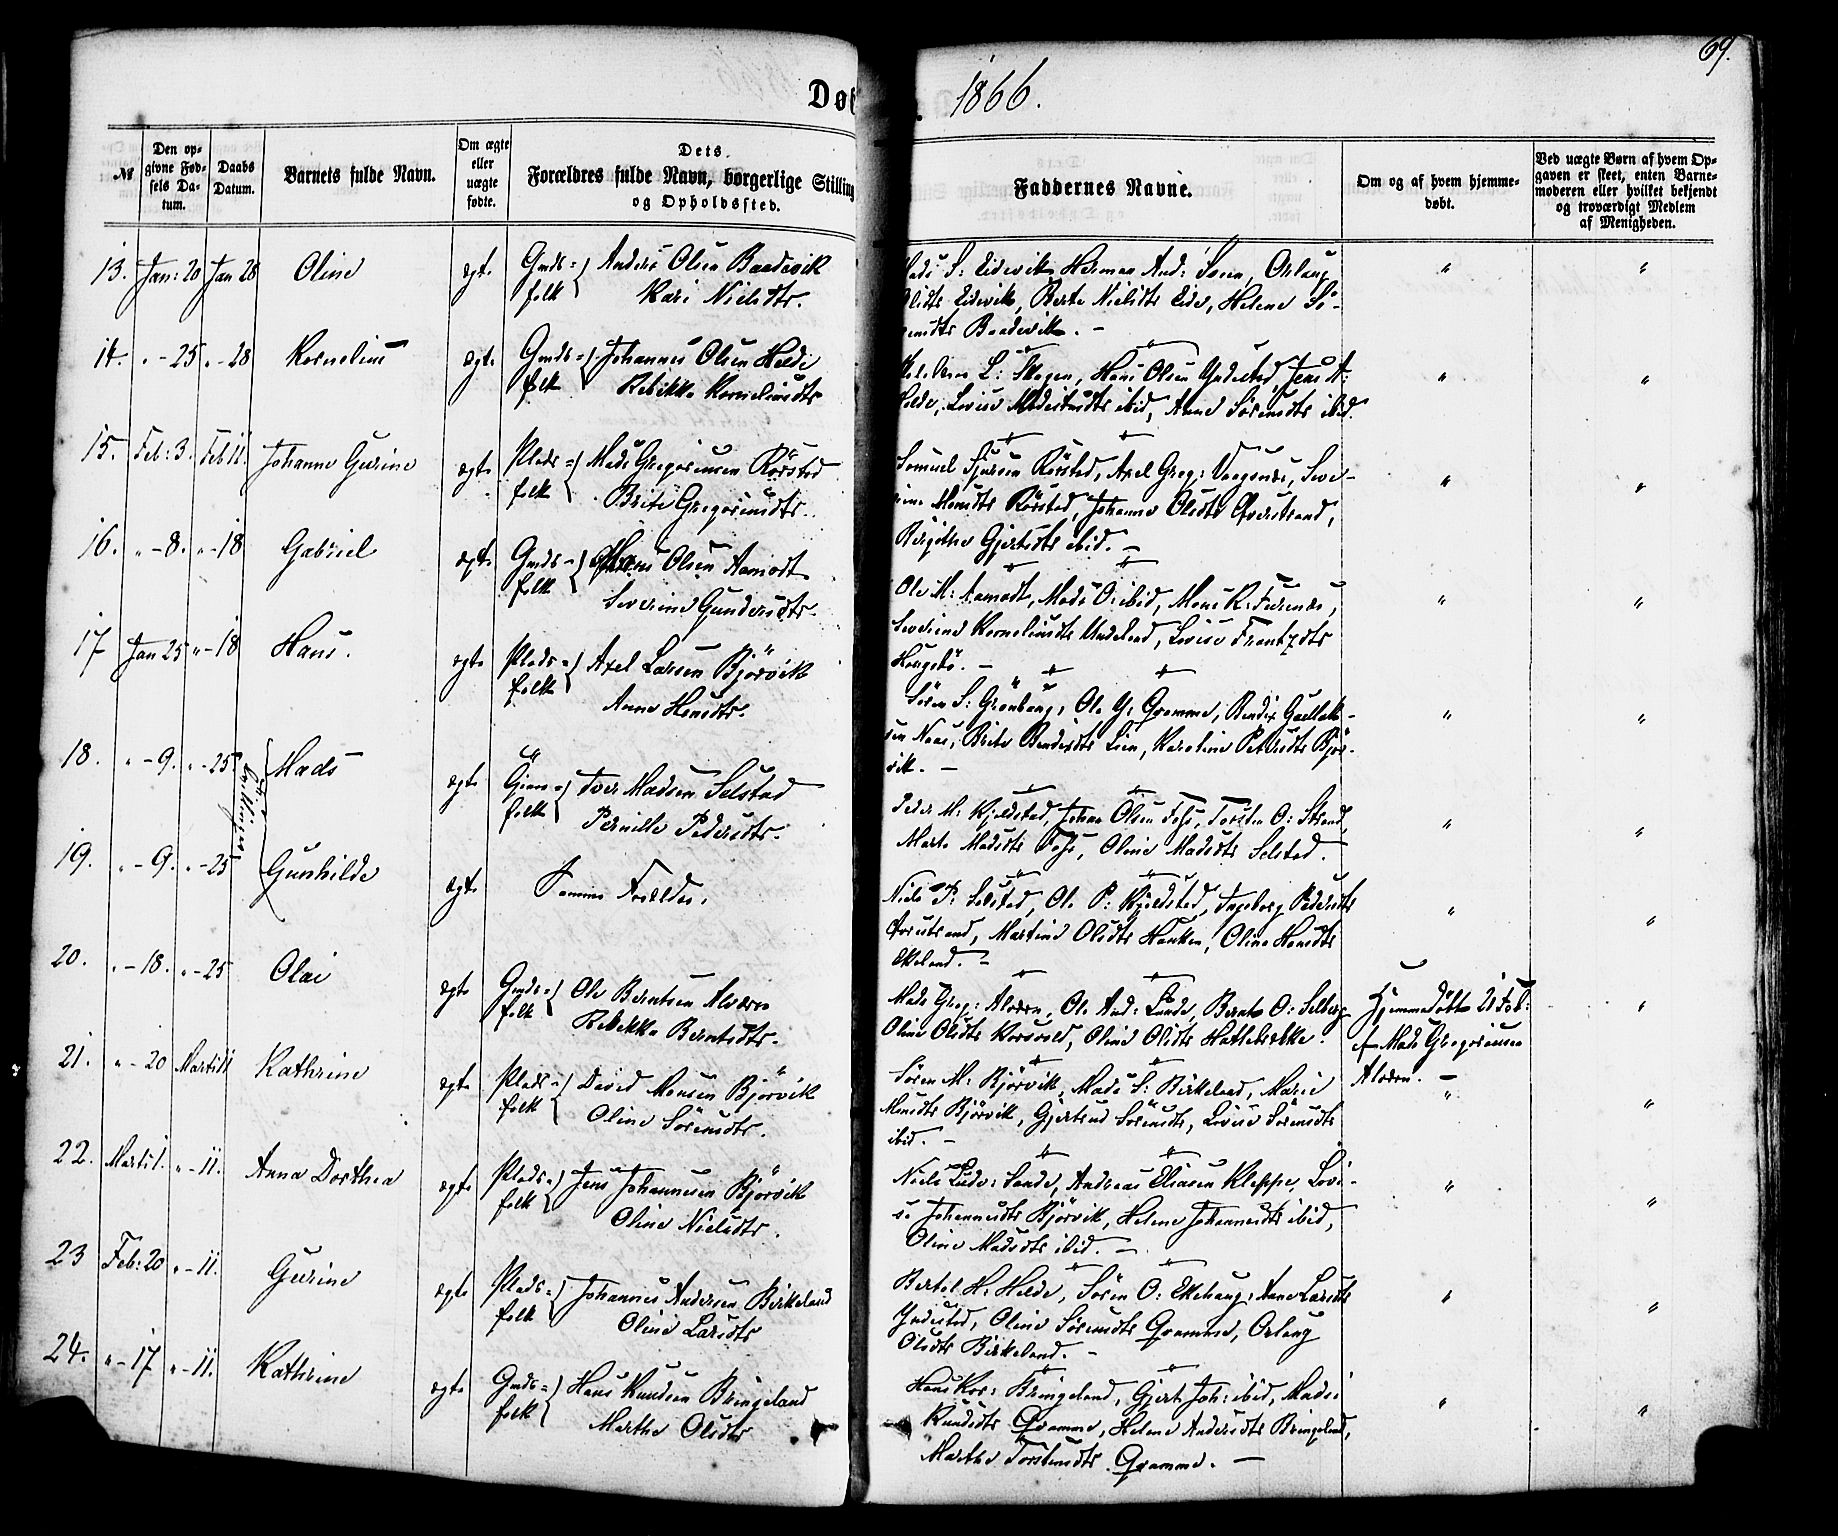 69.
Døb
. 1866.
№
Den op-
givne Fød-
sels Da-
tum.
Daabs
Datum.
Barnets fulde Navn.
Om ægte
eller
uægte
fødte.
Dets
Forældres fulde Navn, borgerlige Stilling
og Opholdssted.
Faddernes Navne.
Om og af hvem hjemme-
døbt.
Ved uægte Børn af hvem Op-
gaven er skeet, enten Barne-
moderen eller hvilket bekjendt
og troværdigt Medlem
af Menigheden.
13. Jan: 20 Jan 28 Oline ægt. Gmds= folk Anders Olsen Baadsvik
Kari Nielsdtr.
Mads S: Eidevik, Herman And: Svein, Orlaug
Olsdtr Eidevik, Berte Nielsdtr Eide, Helene Sö-
rensdtr Baadsvik. -
14. " - 25 " - 28 Kornelius ægt. Gmds= folk Johannes Olsen Helde
Rebikka Korneliusdtr
L: Skogen, Hans Olsen Yndestad, Jens A:
Helde, Lovise Modestusdtr ibid, Anne Sörensdtr ibid.
15. Feb: 3. Feb 11. Johanne Gurine ægt. Plads= folk Mads Gregoriusen Rörstad
Brite Gregoriusdtr.
Samuel Sjursen Rörstad, Axel Greg: Vaagenes, Seve-
rine Monsdtr Rörstad, Johanne Olsdtr Qvenstrand,
Birgithe Gjertsdtr ibid. -
16. " - 8. " - 18 Gabriel ægt. Gmds= folk Mons Olsen Aamodt
Severine Gundersdtr.
Ole M: Aamodt, Mads O: ibid, Mons R: Furenes,
Severine Korneliusdtr Undeland, Lovise Frantzdtr
Hengebö. -
17 Jan 25 " - 18 Hans. ægt. Plads= folk Axel Larsen Björvik
Anne Hansdtr.
Sören S: Grönhaug, Ole G: Qvamme, Bendix Gullak-
sen Naes, Brite Bendixdtr Lien, Karoline Petersdtr Björ-
vik. -
18. " - 9. " - 25. Mads ægt. Gjæve= folk Iver Madsen Selstad
Pernille Pedersdtr.
Tvillinger
Peder M: Kjelstad, Johan Olsen Foss, Torsten O: Strand,
Marte Madsdtr Foss, Oline Madsdtr Selstad.
19. " - 9. " - 25 Gunhilde ægt. Samme Forældre.
Niels P: Selstad, Ole P: Kjelstad, Ingeborg Pedersdtr
Martine Olsdtr Hauken, Oline Hansdtr
Ekeland. -
20. " - 18. " - 25 Olai ægt. Gmds= folk Ole Berntsen Alværa
Rebekka Berntsdtr.
Mads Greg: Alværa, Ole And: Lunde, Bernt O: Selberg
Oline Olsdtr Korsvold, Oline Olsdtr Hatlebrekke.
Hjemmedøbt 21 Feb:
af Mads Gregoriusen
Alværa. -
21. " - 20 Marts 11 Kathrine ægt. Plads= folk David Monsen Björvik
Oline Sörensdtr.
Sören M: Björvik, Mads S: Birkeland, Marie
Monsdtr Björvik, Gjertrud Sörensdtr, Lovise Sörensdtr
ibid. -
22. Marts 1. " - 11. Anna Dorthea ægt. Plads= folk Jens Johannesen Björvik
Oline Nielsdtr.
Niels Ludv: Sande, Andreas Eliasen Kleppe, Lovi-
se Johannesdtr Björvik, Helene Johannesdtr ibid,
Oline Madsdtr ibid. -
23 Feb: 20 " - 11. Gurine ægt. Plads= folk Johannes Andersen Birkeland
Oline Larsdtr
Bertel H: Helde, Sören O: Ekehaug, Anne Larsdtr
Yndestad, Oline Sörensdtr Qvamme, Orlaug
Olsdtr Birkeland. -
24. " - 17 " - 11. Kathrine ægt. Gmds= folk Hans Knudsen Bringeland
Marthe Olsdtr
Hans Kor: Bringeland, Gjert Joh: ibid, Madsi
Knudsdtr Qvamme, Helene Andersdtr Bringeland,
Marthe Torstensdtr Qvamme. -